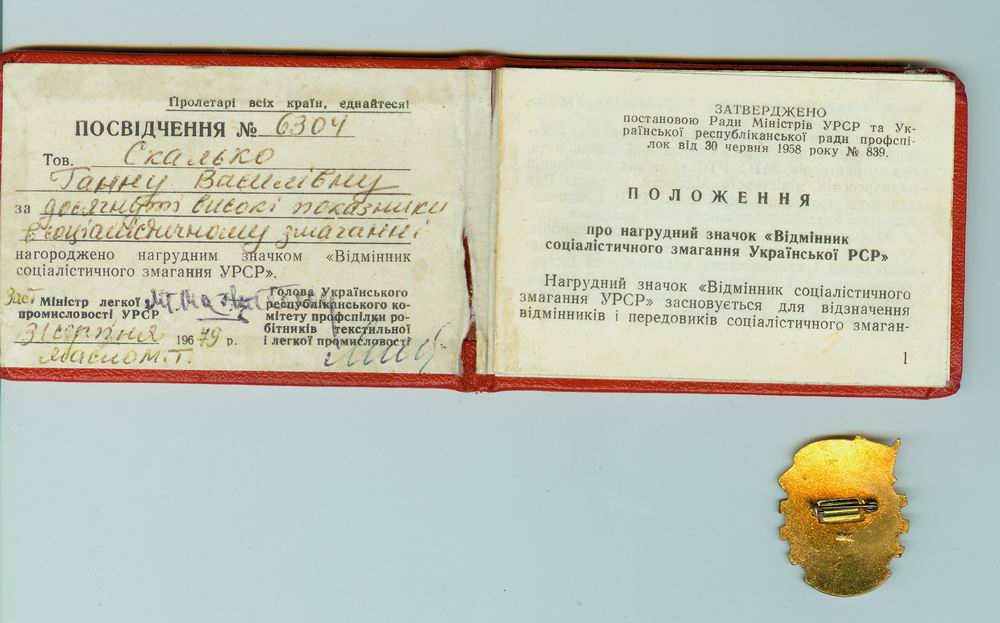 Пролетарі всіх країн, єднайтеся!
ПОСВІДЧЕННЯ № 6304
Тов. Скалько
Ганну Василівну
за досягнуті високі показники
в соціалістичному змаганні
нагороджено нагрудним значком «Відмінник
соціалістичного змагання УРСР».
Заст Міністр легкої
промисловості УРСР
31 серпня 196 79 р.
Масло М.Т.
Голова Українського
республіканського ко-
мітету профспілки ро-
бітників текстильної
і легкої промисловості
ЗАТВЕРДЖЕНО
постановою Ради Міністрів УРСР та Ук-
раїнської республіканської ради профспі-
лок від 30 червня 1958 року № 839.
ПОЛОЖЕННЯ
про нагрудний значок «Відмінник
соціалістичного змагання Української РСР»
Нагрудний значок «Відмінник соціалістичного
змагання УРСР» засновується для відзначення
відмінників і передовиків соціалістичного змаган-
1